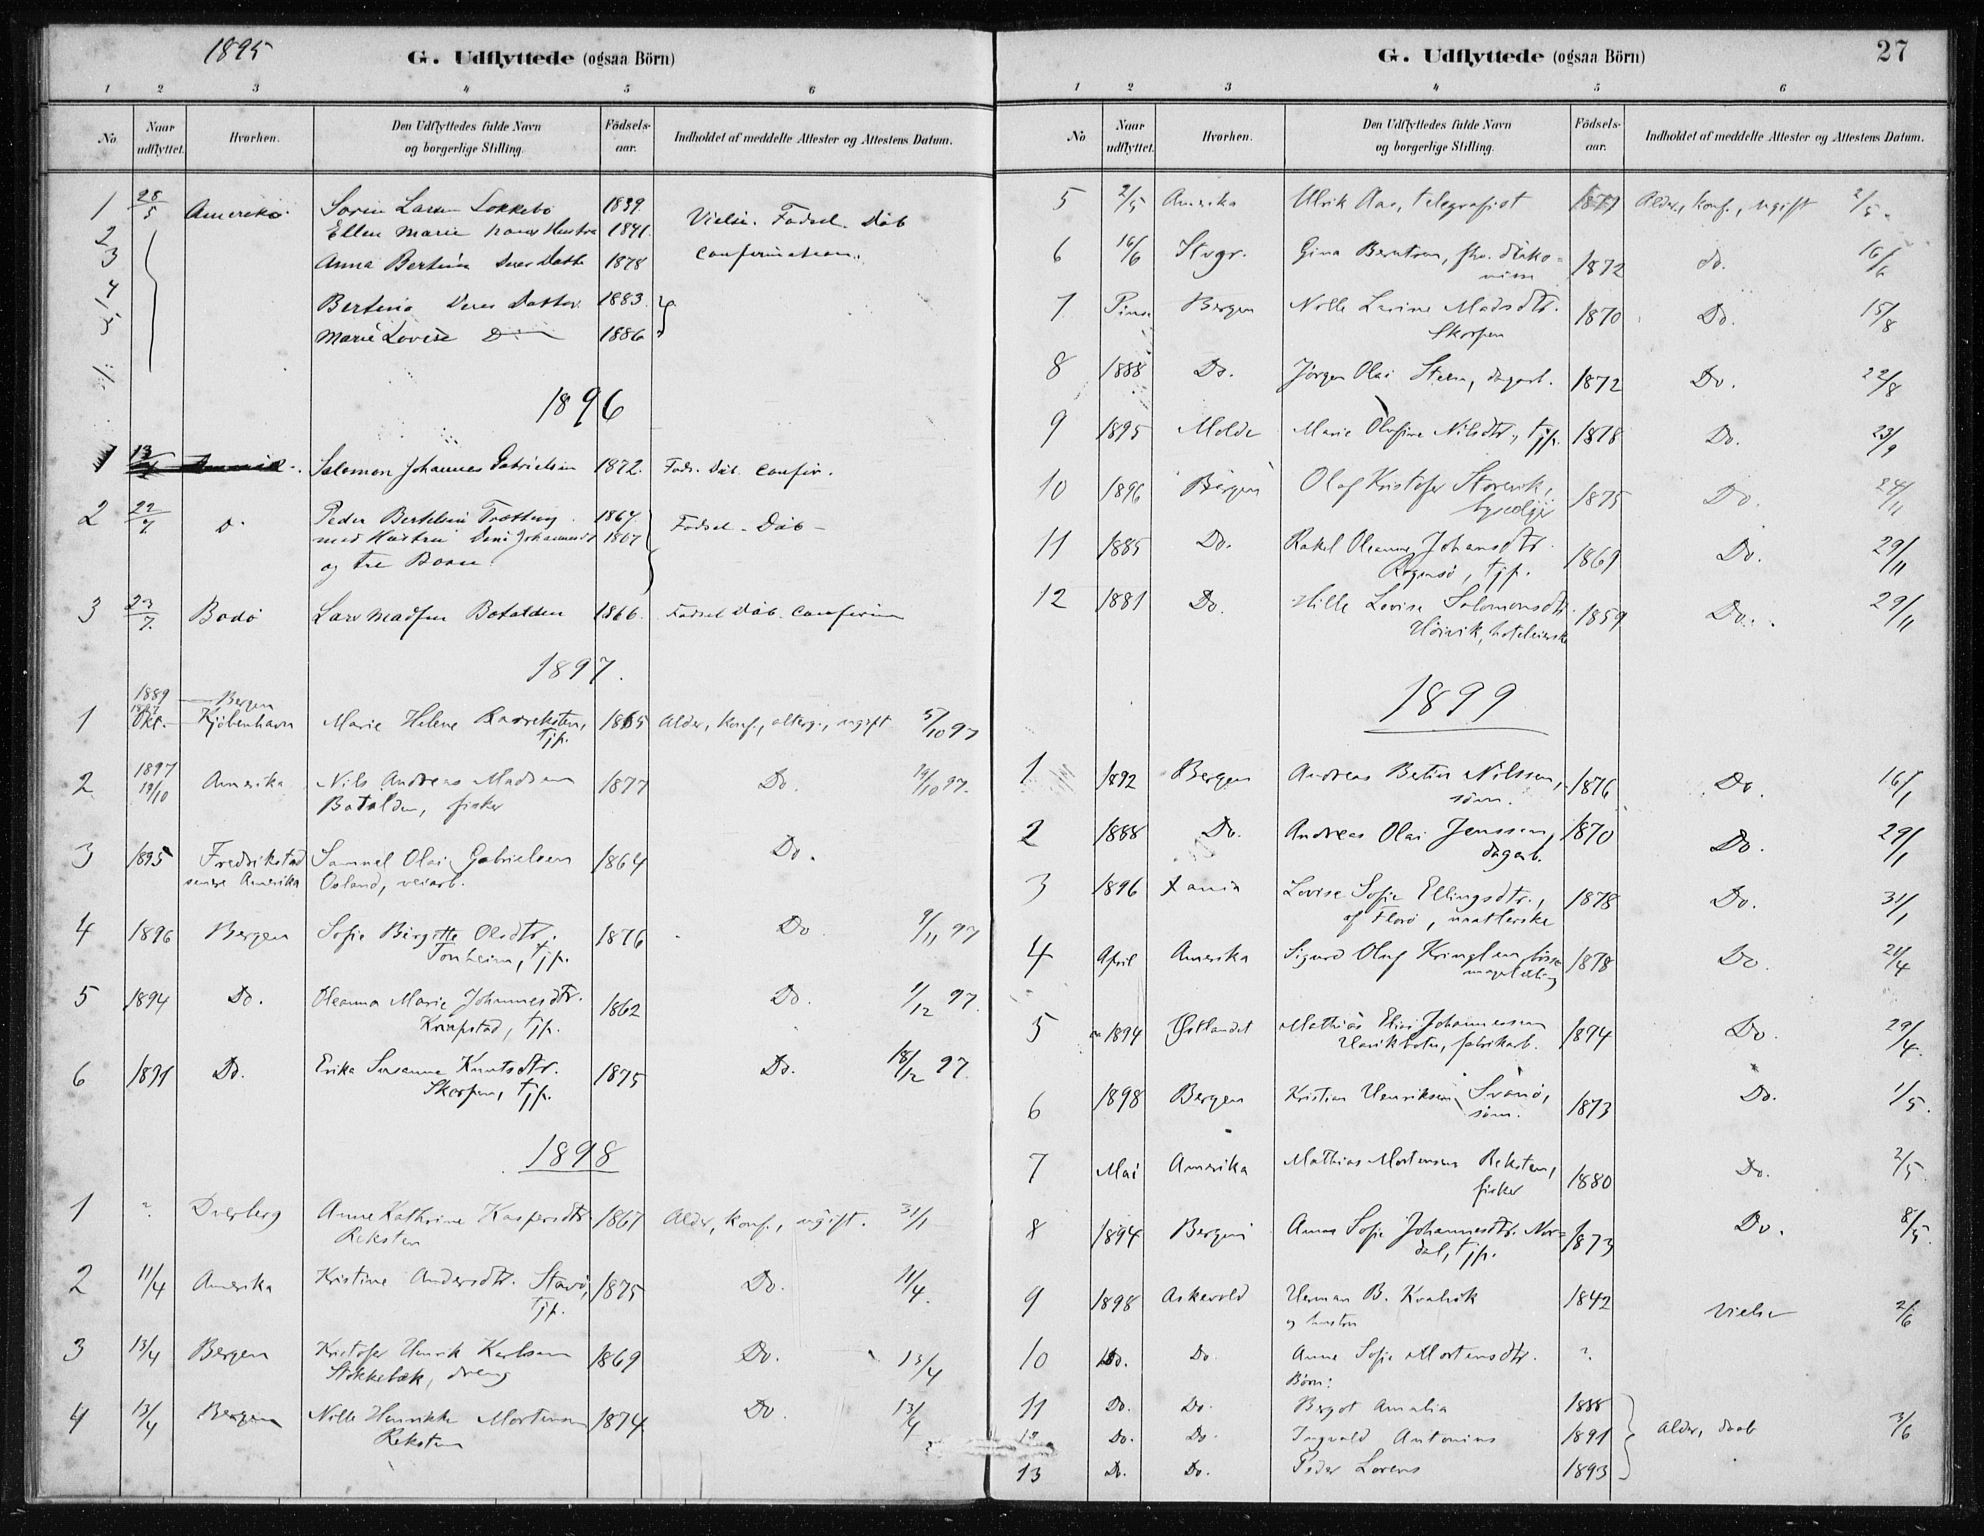 1895
G. Udflyttede (ogsaa Börn)
1 2 3 4 5 6
No. Naar udflyttet. Hvorhen. Den Udflyttedes fulde Navn og borgerlige Stilling. Födsels-aar. Indholdet af meddelte Attester og Attestens Datum.
1 28/5 Amerika Sören Larsen 1839 Vielse. Fødsel. Dåb
2 Ellen Marie hans Hustru 1841 Confirmation.
3 Anna Bertina deres Datter 1878
4 Bertina Deres Datter 1883
5 Marie Lovise D 1886
1896
1 Salomon Johannes Gabrielsen 1872 Føds. Dåb. Confir.
2 22/7 D Peder Bertelsen 1867 Fødsel - Dåb -
med Hustru 1867
og tre Børn
3 23/7 Bodö Lars Madsen Batalden 1866 Fødsel Dåb. Confirm
1897.
1889 Bergen
1 1897 Okt. Kjöbenhavn Marie Helene 1865 Alder, konf., alterg., ugift 5/10 97
tjp.
2 1897 Amerika Nils Andreas Madsen 1877 Do. 19/10 97.
19/10 Batalden, fisker
3 1895 Fredrikstad Samuel Olai Gabrielsen 1864 Do.
senere Amerika Osland, veiarb.
4 1896 Bergen Sofie Birgitte Olsdtr. 1876 Do 9/11 97
Tonheim, tjp.
5 1894 Do. Oleanna Marie Johannesdtr. 1862 Do. 9/12 97.
Knapstad, tjp.
6 1891 Do. Erika Susanne Knutsdtr. 1875 Do. 18/12 97.
Skorpen, tjp.
1898
1 ? Dverberg Anne Kathrine Kaspersdtr 1867 Alder, konf., ugift. 31/1
Reksten
2 11/4 Amerika Kristine Andersdtr. 1875 Do. 11/4.
tjp.
3 13/4 Bergen Kristofer Henrik Karlsen 1869 Do. 13/4
Stokkebæk, dreng
4 13/4 Bergen Nille Henrikke Mortensen 1874 Do. 13/4
Reksten
G. Udflyttede (ogsaa Börn) 27
1 2 3 4 5 6
No Naar udflyttet. Hvorhen. Den Udflyttedes fulde Navn og borgerlige Stilling. Födsels-aar. Indholdet af meddelte Attester og Attestens Datum.
5 2/5 Amerika Ulrik Aas, telegrafist Alder, konf., ugift 2/5.
6 16/6 Stvgr. Gina Berntsen, diako- 1872 do. 16/6
nisse
7 Bergen Nille Larine Madsdtr. 1870 Do. 15/8
Skorpen
8 1888 Do. Jörgen Olai Steen, dagarb. 1872 Do. 22/8
9 1895 Molde Marie Olufine Nilsdtr., tjp. 1878 Do. 23/9
10 1896 Bergen Olaf Kristofer Storevik, 1875 Do. 24/11
11 1885 Do. Rakel Oleanne Johansdtr. 1869 Do. 29/11
tjp.
12 1881 Do. Hille Lovise Salomonsdtr. 1859 Do. 29/11
Hörvik,
1899
1 1892 Bergen Andreas Bertin Nilssen, 1876 Do. 16/1
söm.
2 1888 Do. Andreas Olai Jenssen, 1870 Do. 29/1
dagarb.
3 1896 Xania Lovise Sofie Ellingsdtr., 1878 Do. 31/1
af Florö,
4 April Amerika Sigurd Oluf 1878 Do. 21/4
5 1894 Østlandet Mathias Elias Johannessen 1894 Do. 29/4.
fabrikarb.
6 1898 Bergen Kristian Henriksen Svanö, 1873 Do. 1/5.
söm.
7 Mai Amerika Mathias Mortensen Reksten, 1880 Do. 2/5.
fisker
8 1894 Bergen Anna Sofie Johannesdtr. Nor- 1873 Do. 8/5.
dal, tjp.
9 1898 Askevold Herman B. Kvalvik 1842 Vielse 2/6
og hustru
10 Do. Do. Anne Sofie Mortensdtr. ?
Börn:
11 Do. Do. Bergot Amalia 1888
12 Do. Do. Ingvald Antonius 1891 Alder, daab 3/6
13 Do. Do. Peder Lorens 1893